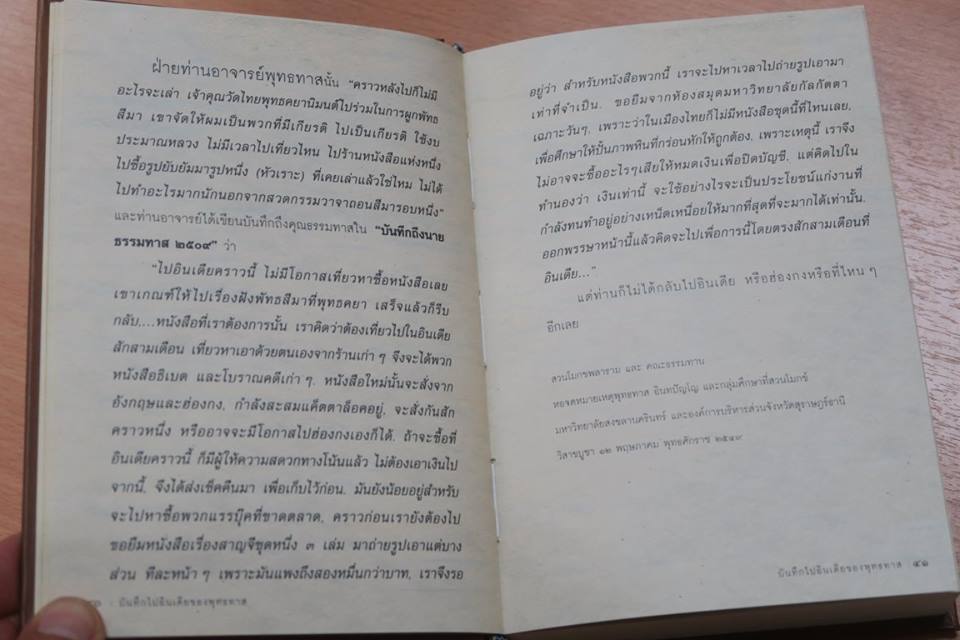 ฝ่ายท่านอาจารย์พุทธทาสนั้น “คราวหลังไปก็ไม่มี
อะไรจะเล่า เจ้าคุณวัดไทยพุทธคยานิมนต์ไปร่วมในการผูกพัทธ
สีมา เขาจัดให้ผมเป็นพวกที่มีเกียรติ ไปเป็นเกียรติ ใช้งบ
ประมาณหลวง ไม่มีเวลาไปเที่ยวไหน ไปร้านหนังสือแห่งหนึ่ง
ไปซื้อรูปยับยัมมารูปหนึ่ง (หัวเราะ) ที่เคยเล่าแล้วใช่ไหม ไม่ได้
ไปทำอะไรมากนักนอกจากสวดกรรมวาจาถอนสีมารอบหนึ่ง”
และท่านอาจารย์ได้เขียนบันทึกถึงคุณธรรมทาสใน “บันทึกถึงนาย
ธรรมทาส ๒๕๐๙” ว่า
“ไปอินเดียคราวนี้ ไม่มีโอกาสเที่ยวหาซื้อหนังสือเลย
เขาเกณฑ์ให้ไปเรื่องฝังพัทธสีมาที่พุทธคยา เสร็จแล้วก็รีบ
กลับ,...หนังสือที่เราต้องการนั้น เราคิดว่าต้องเที่ยวไปในอินเดีย
สักสามเดือน เที่ยวหาเอาด้วยตนเองจากร้านเก่า ๆ จึงจะได้พวก
หนังสือธิเบต และโบราณคดีเก่า ๆ. หนังสือใหม่นั้นจะสั่งจาก
อังกฤษและฮ่องกง, กำลังสะสมแค็ตตาล็อคอยู่, จะสั่งกันสัก
คราวหนึ่ง หรืออาจจะมีโอกาสไปฮ่องกงเองก็ได้. ถ้าจะซื้อที่
อินเดียคราวนี้ ก็มีผู้ให้ความสดวกทางโน้นแล้ว ไม่ต้องเอาเงินไป
จากนี้. จึงได้ส่งเช็คคืนมา เพื่อเก็บไว้ก่อน. มันยังน้อยอยู่สำหรับ
จะไปหาซื้อพวกแรร์บุ๊คที่ขาดตลาด, คราวก่อนเรายังต้องไป
ขอยืมหนังสือเรื่องสาญจีชุดหนึ่ง ๓ เล่ม มาถ่ายรูปเอาแต่บาง
ส่วน ทีละหน้า ๆ เพราะมันแพงถึงสองหมื่นกว่าบาท, เราจึงรอ
: บันทึกไปอินเดียของพุทธทาส
อยู่ว่า สำหรับหนังสือพวกนี้ เราจะไปหาเวลาไปถ่ายรูปเอามา
เท่าที่จำเป็น. ขอยืมจากห้องสมุดมหาวิทยาลัยกัลกัตตา
เฉภาะวันๆ, เพราะว่าในเมืองไทยก็ไม่มีหนังสือชุดนี้ที่ไหนเลย,
เพื่อศึกษาให้ปั้นภาพหินที่กร่อนหักให้ถูกต้อง, เพราะเหตุนี้ เราจึง
ไม่อาจจะซื้ออะไรๆเสียให้หมดเงินเพื่อปิดบัญชี, แต่คิดไปใน
ทำนองว่า เงินเท่านี้ จะใช้อย่างไรจะเป็นประโยชน์แก่งานที่
กำลังทนทำอยู่อย่างเหน็ดเหนื่อยให้มากที่สุดที่จะมากได้เท่านั้น.
ออกพรรษาหน้านี้แล้วคิดจะไปเพื่อการนี้โดยตรงสักสามเดือนที่
อินเดีย...”
แต่ท่านก็ไม่ได้กลับไปอินเดีย หรือฮ่องกงหรือที่ไหน ๆ
อีกเลย
สวนโมกขพลาราม และ คณะธรรมทาน
หอจดหมายเหตุพุทธทาส อินทปัญโญ และกลุ่มศึกษาที่สวนโมกข์
มหาวิทยาลัยสงขลานครินทร์ และองค์การบริหารส่วนจังหวัดสุราษฎร์ธานี
วิสาขบูชา ๑๒ พฤษภาคม พุทธศักราช ๒๕๔๙
บันทึกไปอินเดียของพุทธทาส ๔๑